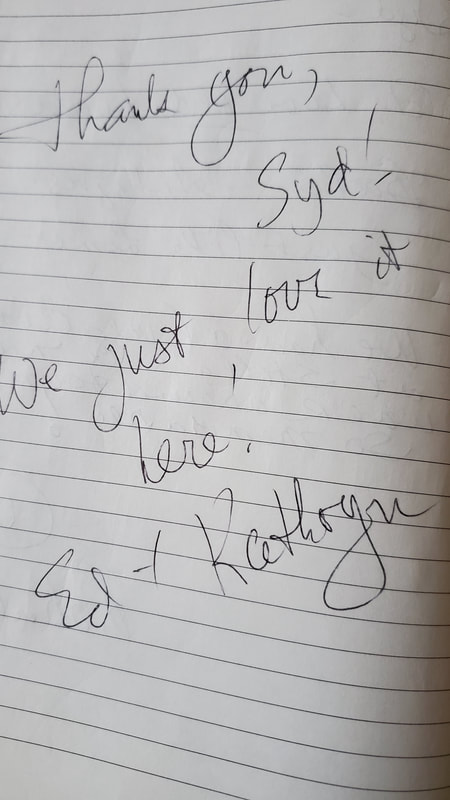 Thank you,
Syd!
We just love it
here!
Ed + Kathryn